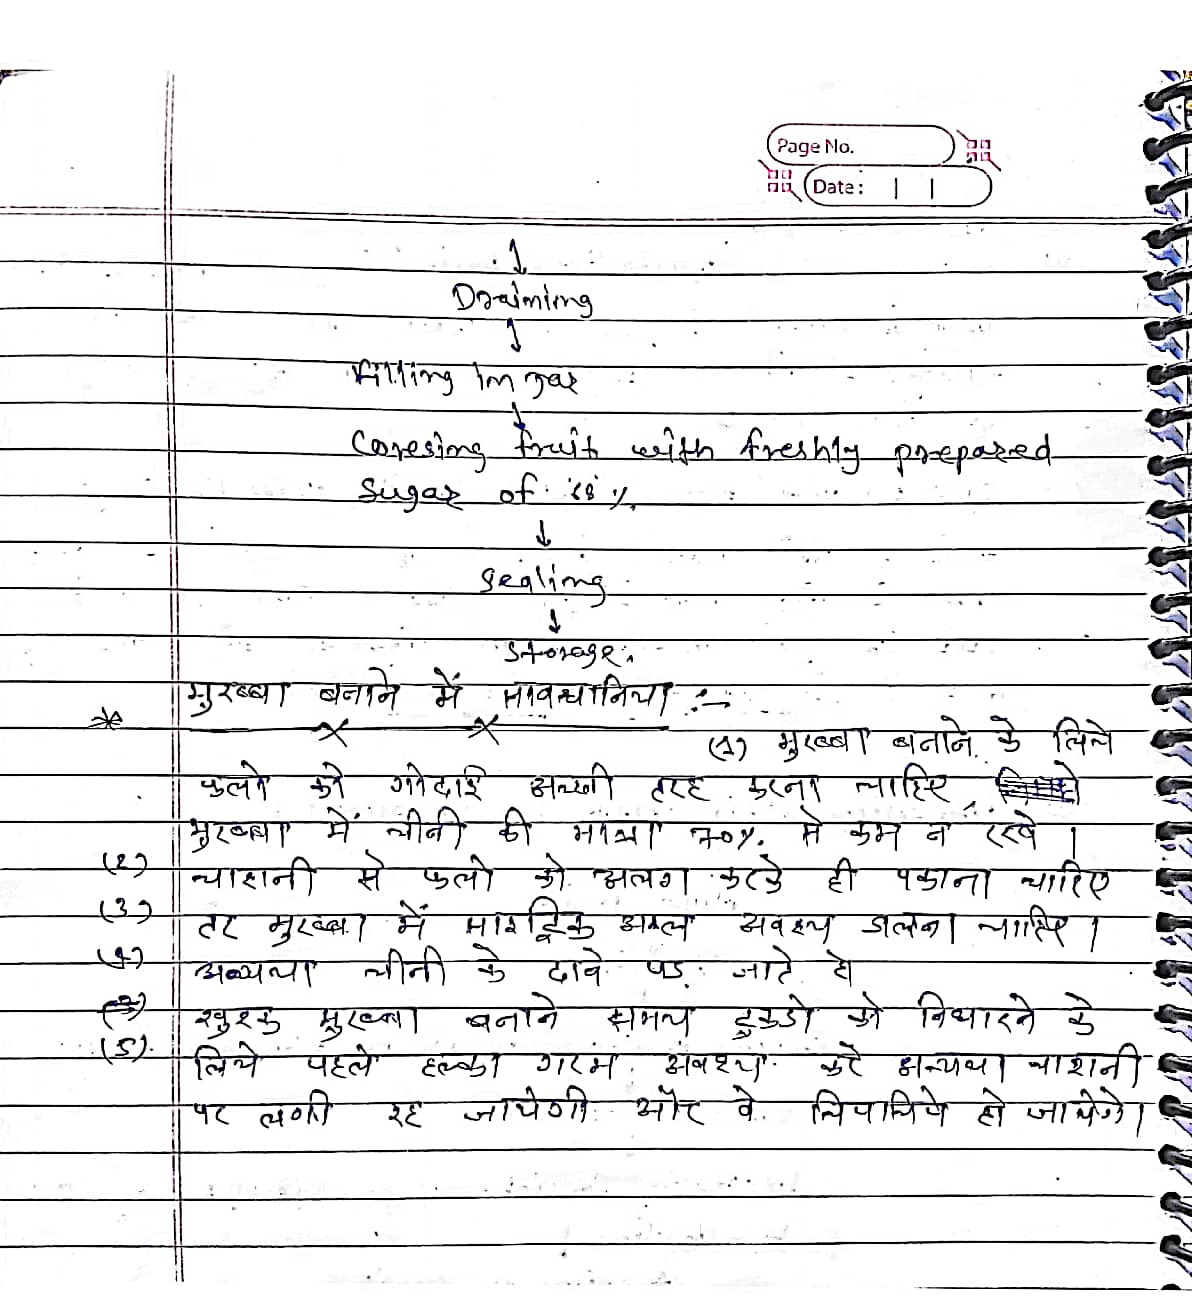 Page No.
Date:
↓
Draining
↓
Filling in jar
↓
Coresing fruit with freshly prepared
Sugar of 68 %.
↓
Sealing
↓
Storage.
* मुरब्बा बनाने में सावधानिया :-
(1) मुरब्बा बनाने के लिये
फलो को गोदाई अच्छी तरह करना चाहिए
मुरब्बा में चीनी की मात्रा 70%. से कम न रखे ।
(2) चाशनी से फलो को अलग करके ही पकाना चाहिए
(3) तर मुरब्बा में साइट्रिक अम्ल अवश्य डालना चाहिए ।
(4) अन्यथा चीनी के दाने पड़ जाते है
(5) खुश्क मुरब्बा बनाने समय टुकडो को निथारने के
लिये पहले हल्का गरम अवश्य करे अन्यथा चाशनी
पर लगी रह जायेगी और वे चिपचिपे हो जायेगे।